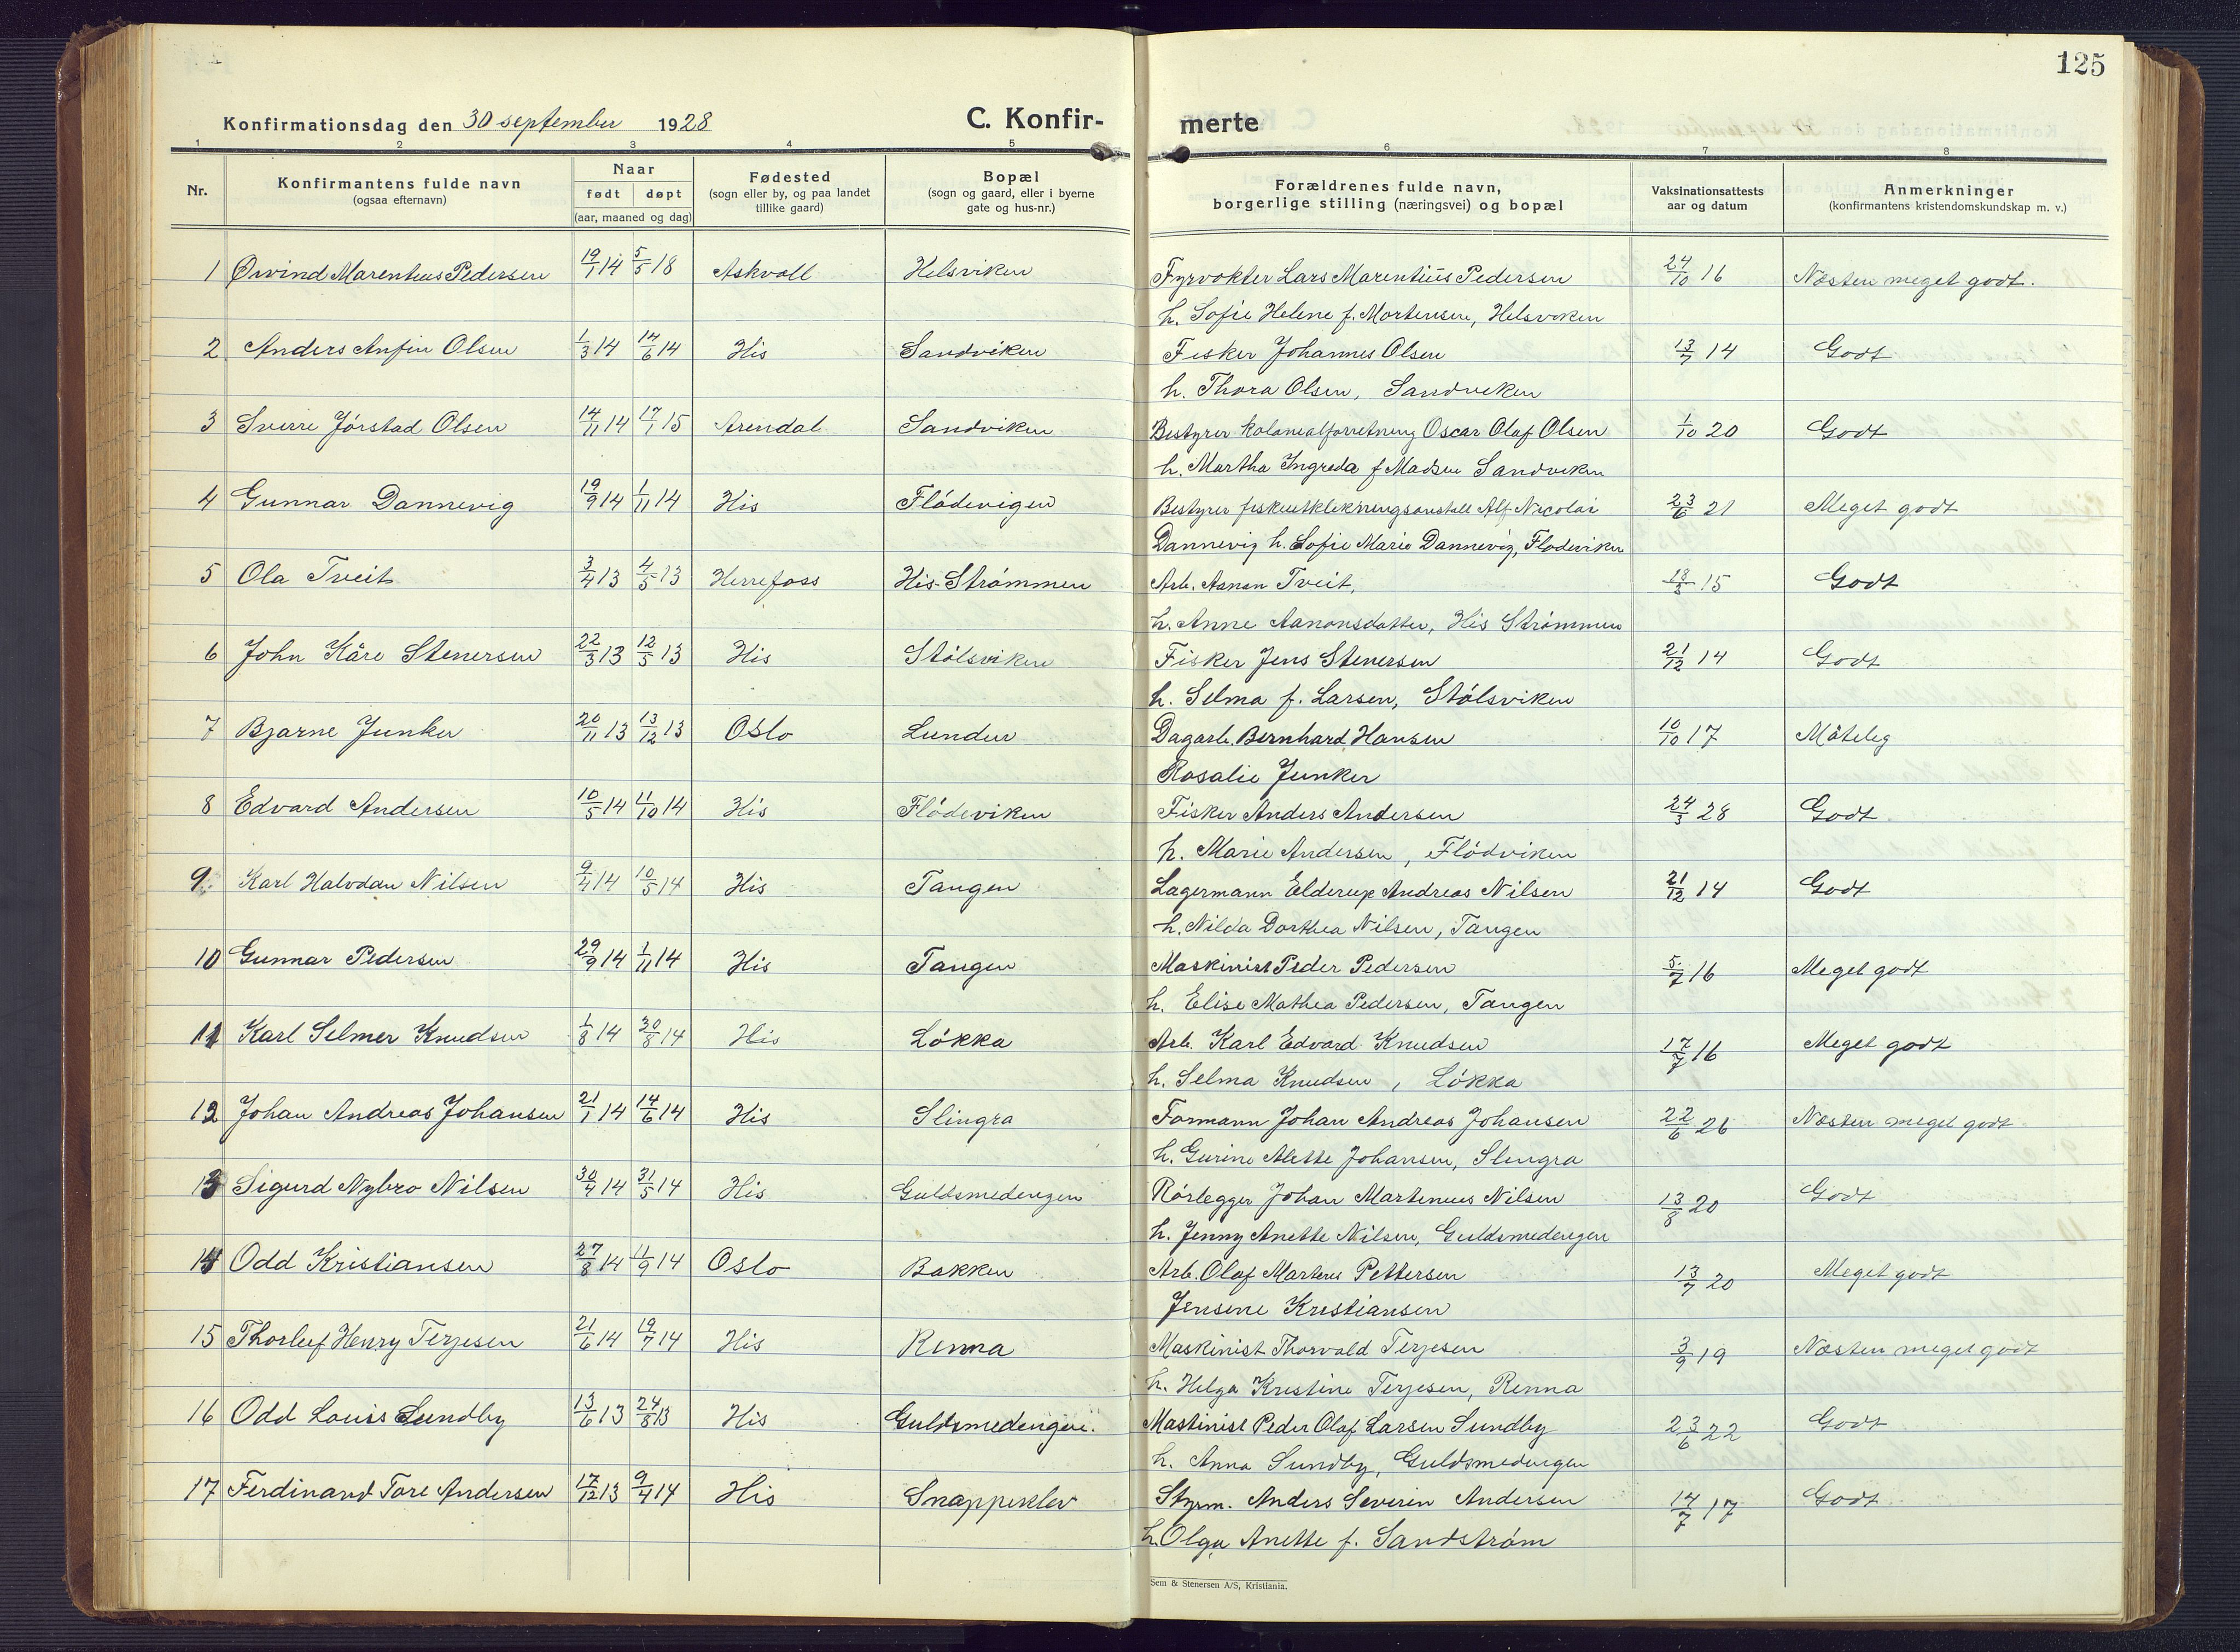 125
Konfirmationsdag den 30 september 1928 C. Konfir- merte
1 2 3 4 5 6 7 8
Nr. Konfirmantens fulde navn (ogsaa efternavn) Naar født døpt (aar, maaned og dag) Fødested (sogn eller by, og paa landet tillike gaard) Bopæl (sogn og gaard, eller i byerne gate og hus-nr.) Forældrenes fulde navn, borgerlige stilling (næringsvei) og bopæl Vaksinationsattests aar og datum Anmerkninger (konfirmantens kristendomskundskap m. v.)
1 Øivind Marentius Pedersen 19/1 14 5/5 18 Askvoll Helsviken Fyrvokter Lars Marentius Pedersen 24/10 16 Næsten meget godt.
h. Sofie Helene f. Mortensen, Helsviken
2 Anders Anfin Olsen 1/3 14 14/6 14 His Sandviken Fisker Johannes Olsen 13/7 14 Godt
h. Thora Olsen, Sandviken
3 Sverre Jørstad Olsen 14/11 14 17/1 15 Arendal Sandviken Bestyrer kolonialforretning Oscar Olaf Olsen 1/10 20 Godt
h. Martha Ingreda f Madsen Sandviken
4 Gunnar Dannevig 19/9 14 1/11 14 His Flødevigen Bestyrer fiskeutklekningsanstalt Alf Nicolai 23/6 21 Meget godt
Dannevig h. Sofie Marie Dannevig, Flodeviken
5 Ola Tveit 3/4 13 4/5 13 Herrefoss His-Strømmen Arb. Aanon Tveit, 18/3 15 Godt
h. Anne Aanonsdatter, His Strømmen
6 John Kåre Stenersen 22/3 13 12/5 13 His Stølsviken Fisker Jens Stenersen 21/12 14 Godt
h. Selma f. Larsen, Stølsviken
7 Bjarne Junker 20/11 13 13/12 13 Oslo Lunden Dagarb. Bernhard Hansen 10/10 17 Måtelig
Rosalie Junker
8 Edvard Andersen 10/5 14 11/10 14 His Flødeviken Fisker Anders Andersen 24/3 28 Godt
h. Marie Andersen, Flödviken
9 Karl Halvdan Nilsen 9/4 14 10/5 14 His Tangen Lagermann Elderup Andreas Nilsen 21/12 14 Godt
h. Nilda Dorthea Nilsen, Tangen
10 Gunnar Pedersen 29/9 14 1/11 14 His Tangen Maskinist Peder Pedersen 5/7 16 Meget godt
h. Elise Mathea Pedersen, Tangen
11 Karl Selmer Knudsen 1/8 14 30/8 14 His Løkka Arb. Karl Edvard Knudsen 17/7 16 Meget godt
h. Selma Knudsen, Løkka
12 Johan Andreas Johansen 21/1 14 14/6 14 His Slingra Formann Johan Andreas Johansen 22/6 26 Næsten meget godt
h. Gurine Alette Johansen, Slingra
13 Sigurd Nybro Nilsen 30/4 14 31/5 14 His Guldsmedengen Rørlegger Johan Martinius Nilsen 13/8 20 Godt
h. Jenny Anette Nilsen, Guldsmedengen
14 Odd Kristiansen 27/8 14 11/9 14 Oslo Bakken Arb. Olaf Martens Pettersen 13/7 20 Meget godt
Jensine Kristiansen
15 Thorleif Henry Terjesen 21/6 14 19/7 14 His Renna Maskinist Thorvald Terjesen 3/9 19 Næsten meget godt
h. Helga Kristine Terjesen, Renna
16 Odd Louis Sundby 13/6 13 24/8 13 His Guldsmedengen. Maskinist Peder Olaf Larsen Sundby 23/6 22 Godt
h. Anna Sundby, Guldsmedengen
17 Ferdinand Tore Andersen 17/12 13 9/4 14 His Snappeklev Styrm. Anders Severin Andersen 14/7 17 Godt
h. Olga Anette f. Sandstrøm
Sem & Stenersen A/S, Kristiania.